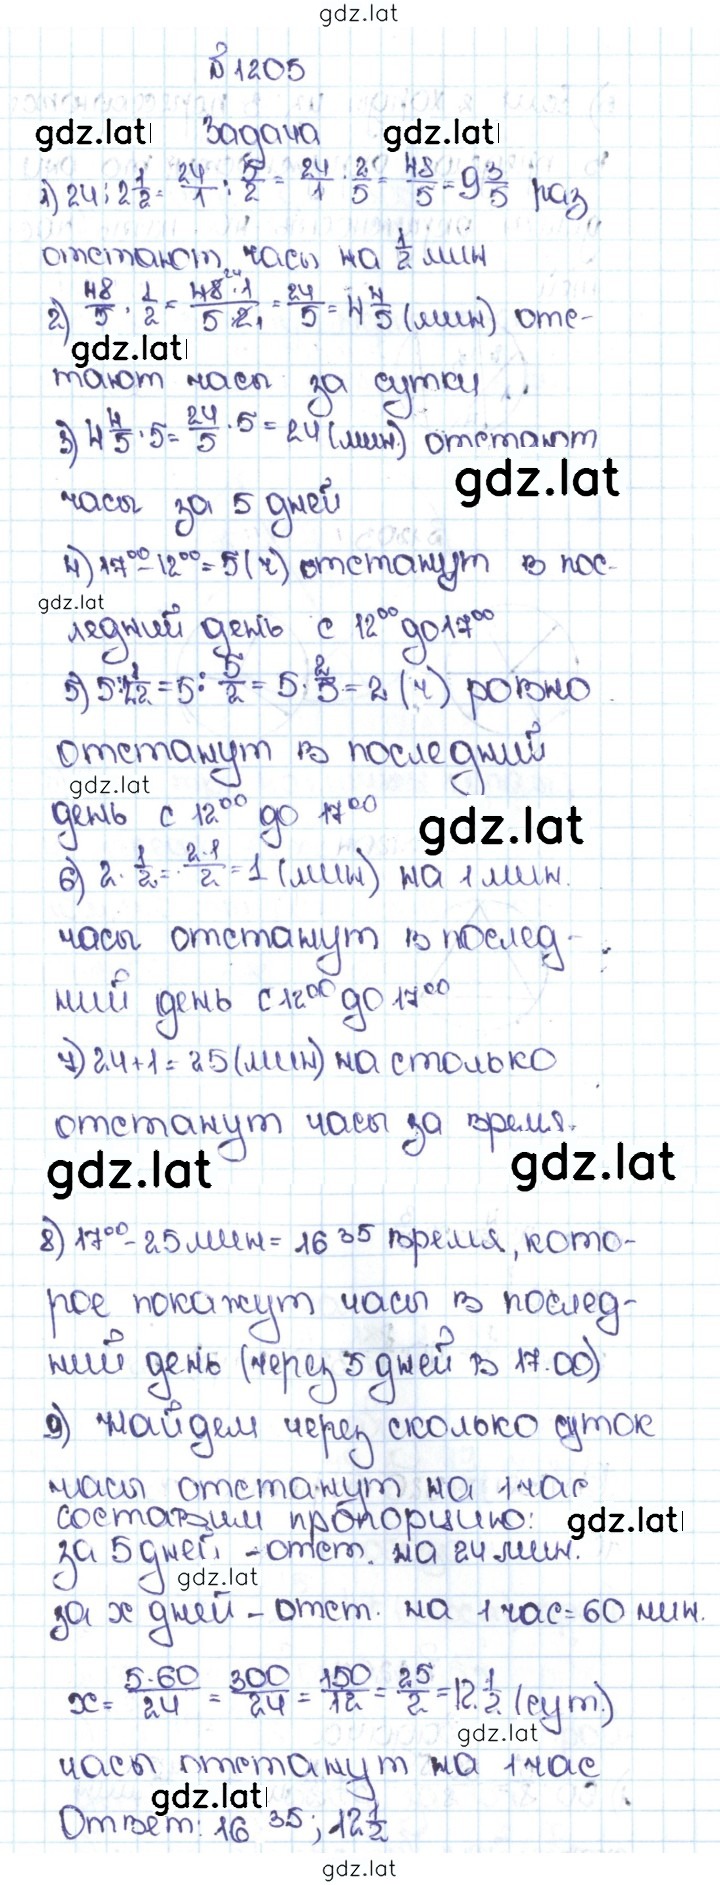 gdz.lat
№1205
gdz.lat Задача gdz.lat
1) 24:2 1/2= 24/1 : 5/2= 24/1 · 2/5= 48/5=9 3/5 раз
отстают часы на 1/2 мин
2) 48/5 · 1/2= 48·1/5·2= 24/5=4 4/5 (мин) отс-
gdz.lat
тают часы за сутки
3) 4 4/5·5= 24/5·5=24(мин.) отстают
gdz.lat
часы за 5 дней
4) 17⁰⁰-12⁰⁰=5(ч) отстанут в пос-
gdz.lat
ледний день с 12⁰⁰ до 17⁰⁰
5) 5:2 1/2=5: 5/2= 5· 2/5=2 (ч) ровно
отстанут в последний
gdz.lat
день с 12⁰⁰ до 17⁰⁰
gdz.lat
6) 2· 1/2= 2·1/2=1 (мин) на 1 мин.
часы отстанут в послед-
ний день с 12⁰⁰ до 17⁰⁰
7) 24+1=25(мин) на столько
отстанут часы за время.
gdz.lat gdz.lat
8) 17⁰⁰-25мин=16³⁵ время, кото-
рое покажут часы в послед-
ний день (через 5 дней в 17.00)
9) найдем через сколько суток
часы отстанут на 1 час
составим пропорцию: gdz.lat
за 5 дней - отст. на 24 мин.
gdz.lat
за x дней - отст. на 1 час=60 мин.
x= 5·60/24 = 300/24 = 150/12 = 25/2 =12 1/2 (сут.)
gdz.lat
часы отстанут на 1 час
gdz.lat
Ответ: 16³⁵; 12 1/2
gdz.lat